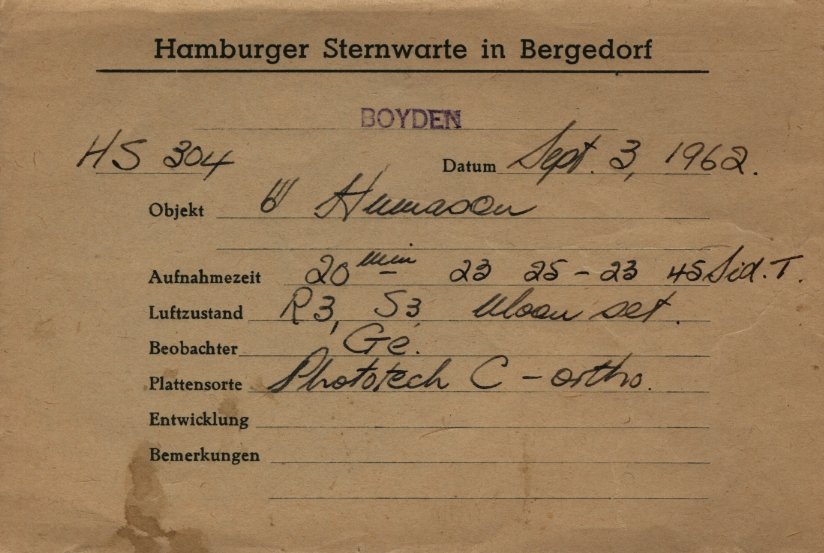 Hamburger Sternwarte in Bergedorf
BOYDEN
HS 304 Datum Sept. 3, 1962.
Objekt Humason
Aufnahmezeit 20 min 23 25 - 23 45 Sid. T.
Luftzustand R3, S3 Moon set.
Beobachter Ge.
Plattensorte Phototech C - ortho.
Entwicklung
Bemerkungen